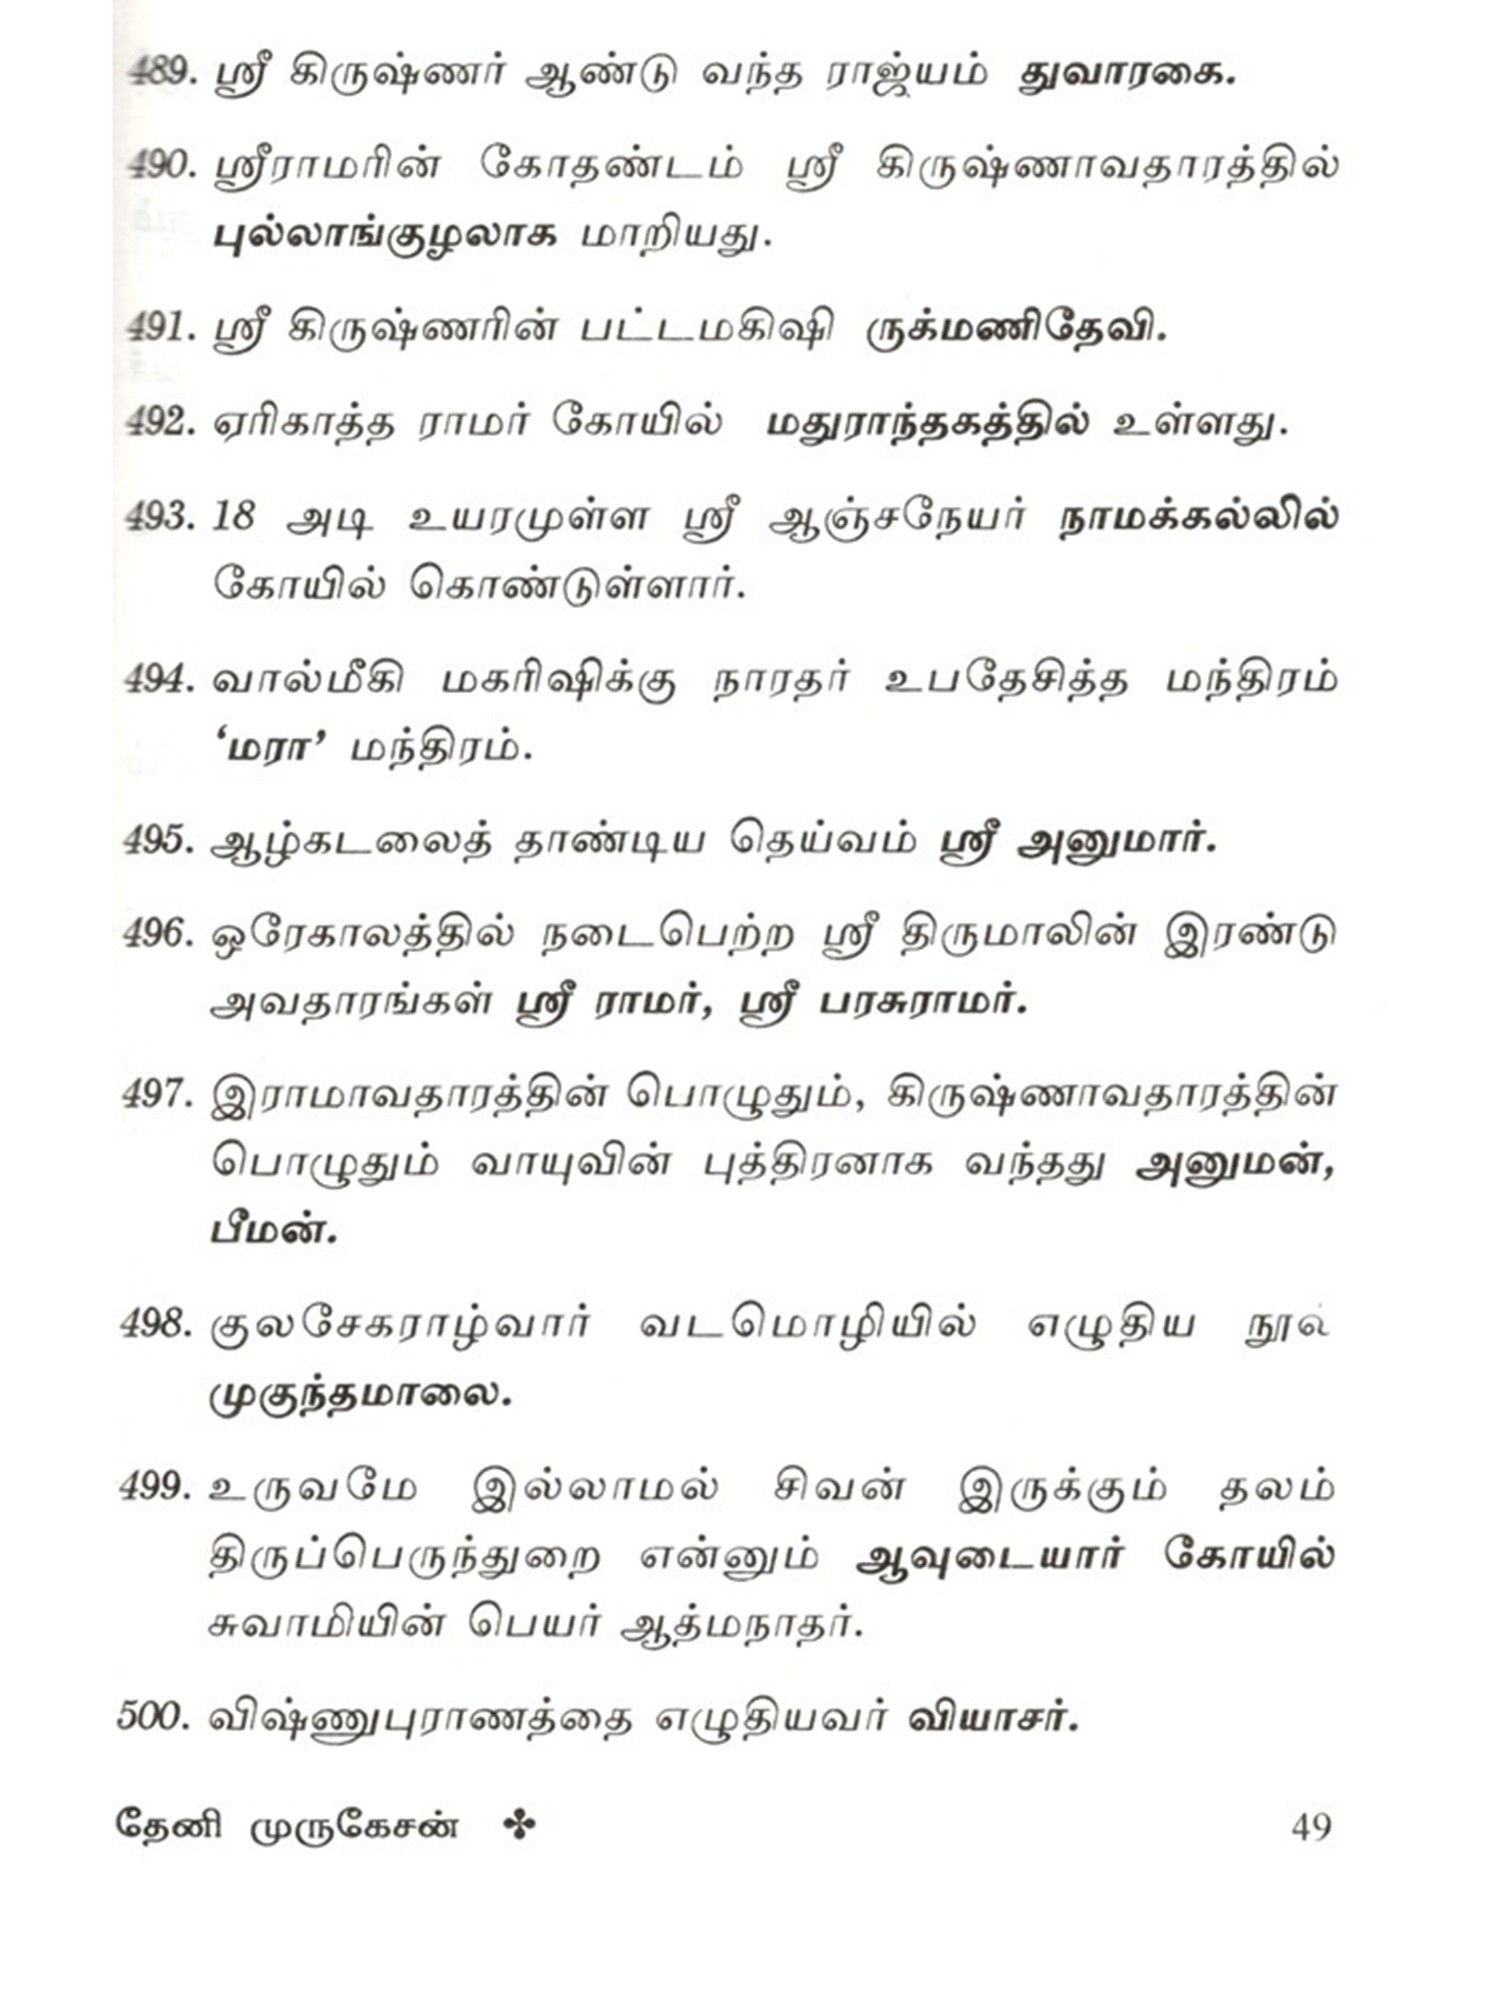 489. ஸ்ரீ கிருஷ்ணர் ஆண்டு வந்த ராஜ்யம் துவாரகை.
490. ஸ்ரீராமரின் கோதண்டம் ஸ்ரீ கிருஷ்ணாவதாரத்தில்
புல்லாங்குழலாக மாறியது.
491. ஸ்ரீ கிருஷ்ணரின் பட்டமகிஷி ருக்மணிதேவி.
492. ஏரிகாத்த ராமர் கோயில் மதுராந்தகத்தில் உள்ளது.
493. 18 அடி உயரமுள்ள ஸ்ரீ ஆஞ்சநேயர் நாமக்கல்லில்
கோயில் கொண்டுள்ளார்.
494. வால்மீகி மகரிஷிக்கு நாரதர் உபதேசித்த மந்திரம்
‘மரா’ மந்திரம்.
495. ஆழ்கடலைத் தாண்டிய தெய்வம் ஸ்ரீ அனுமார்.
496. ஒரேகாலத்தில் நடைபெற்ற ஸ்ரீ திருமாலின் இரண்டு
அவதாரங்கள் ஸ்ரீ ராமர், ஸ்ரீ பரசுராமர்.
497. இராமாவதாரத்தின் பொழுதும், கிருஷ்ணாவதாரத்தின்
பொழுதும் வாயுவின் புத்திரனாக வந்தது அனுமன்,
பீமன்.
498. குலசேகராழ்வார் வடமொழியில் எழுதிய நூல்
முகுந்தமாலை.
499. உருவமே இல்லாமல் சிவன் இருக்கும் தலம்
திருப்பெருந்துறை என்னும் ஆவுடையார் கோயில்
சுவாமியின் பெயர் ஆத்மநாதர்.
500. விஷ்ணுபுராணத்தை எழுதியவர் வியாசர்.
தேனி முருகேசன் ✤ 49